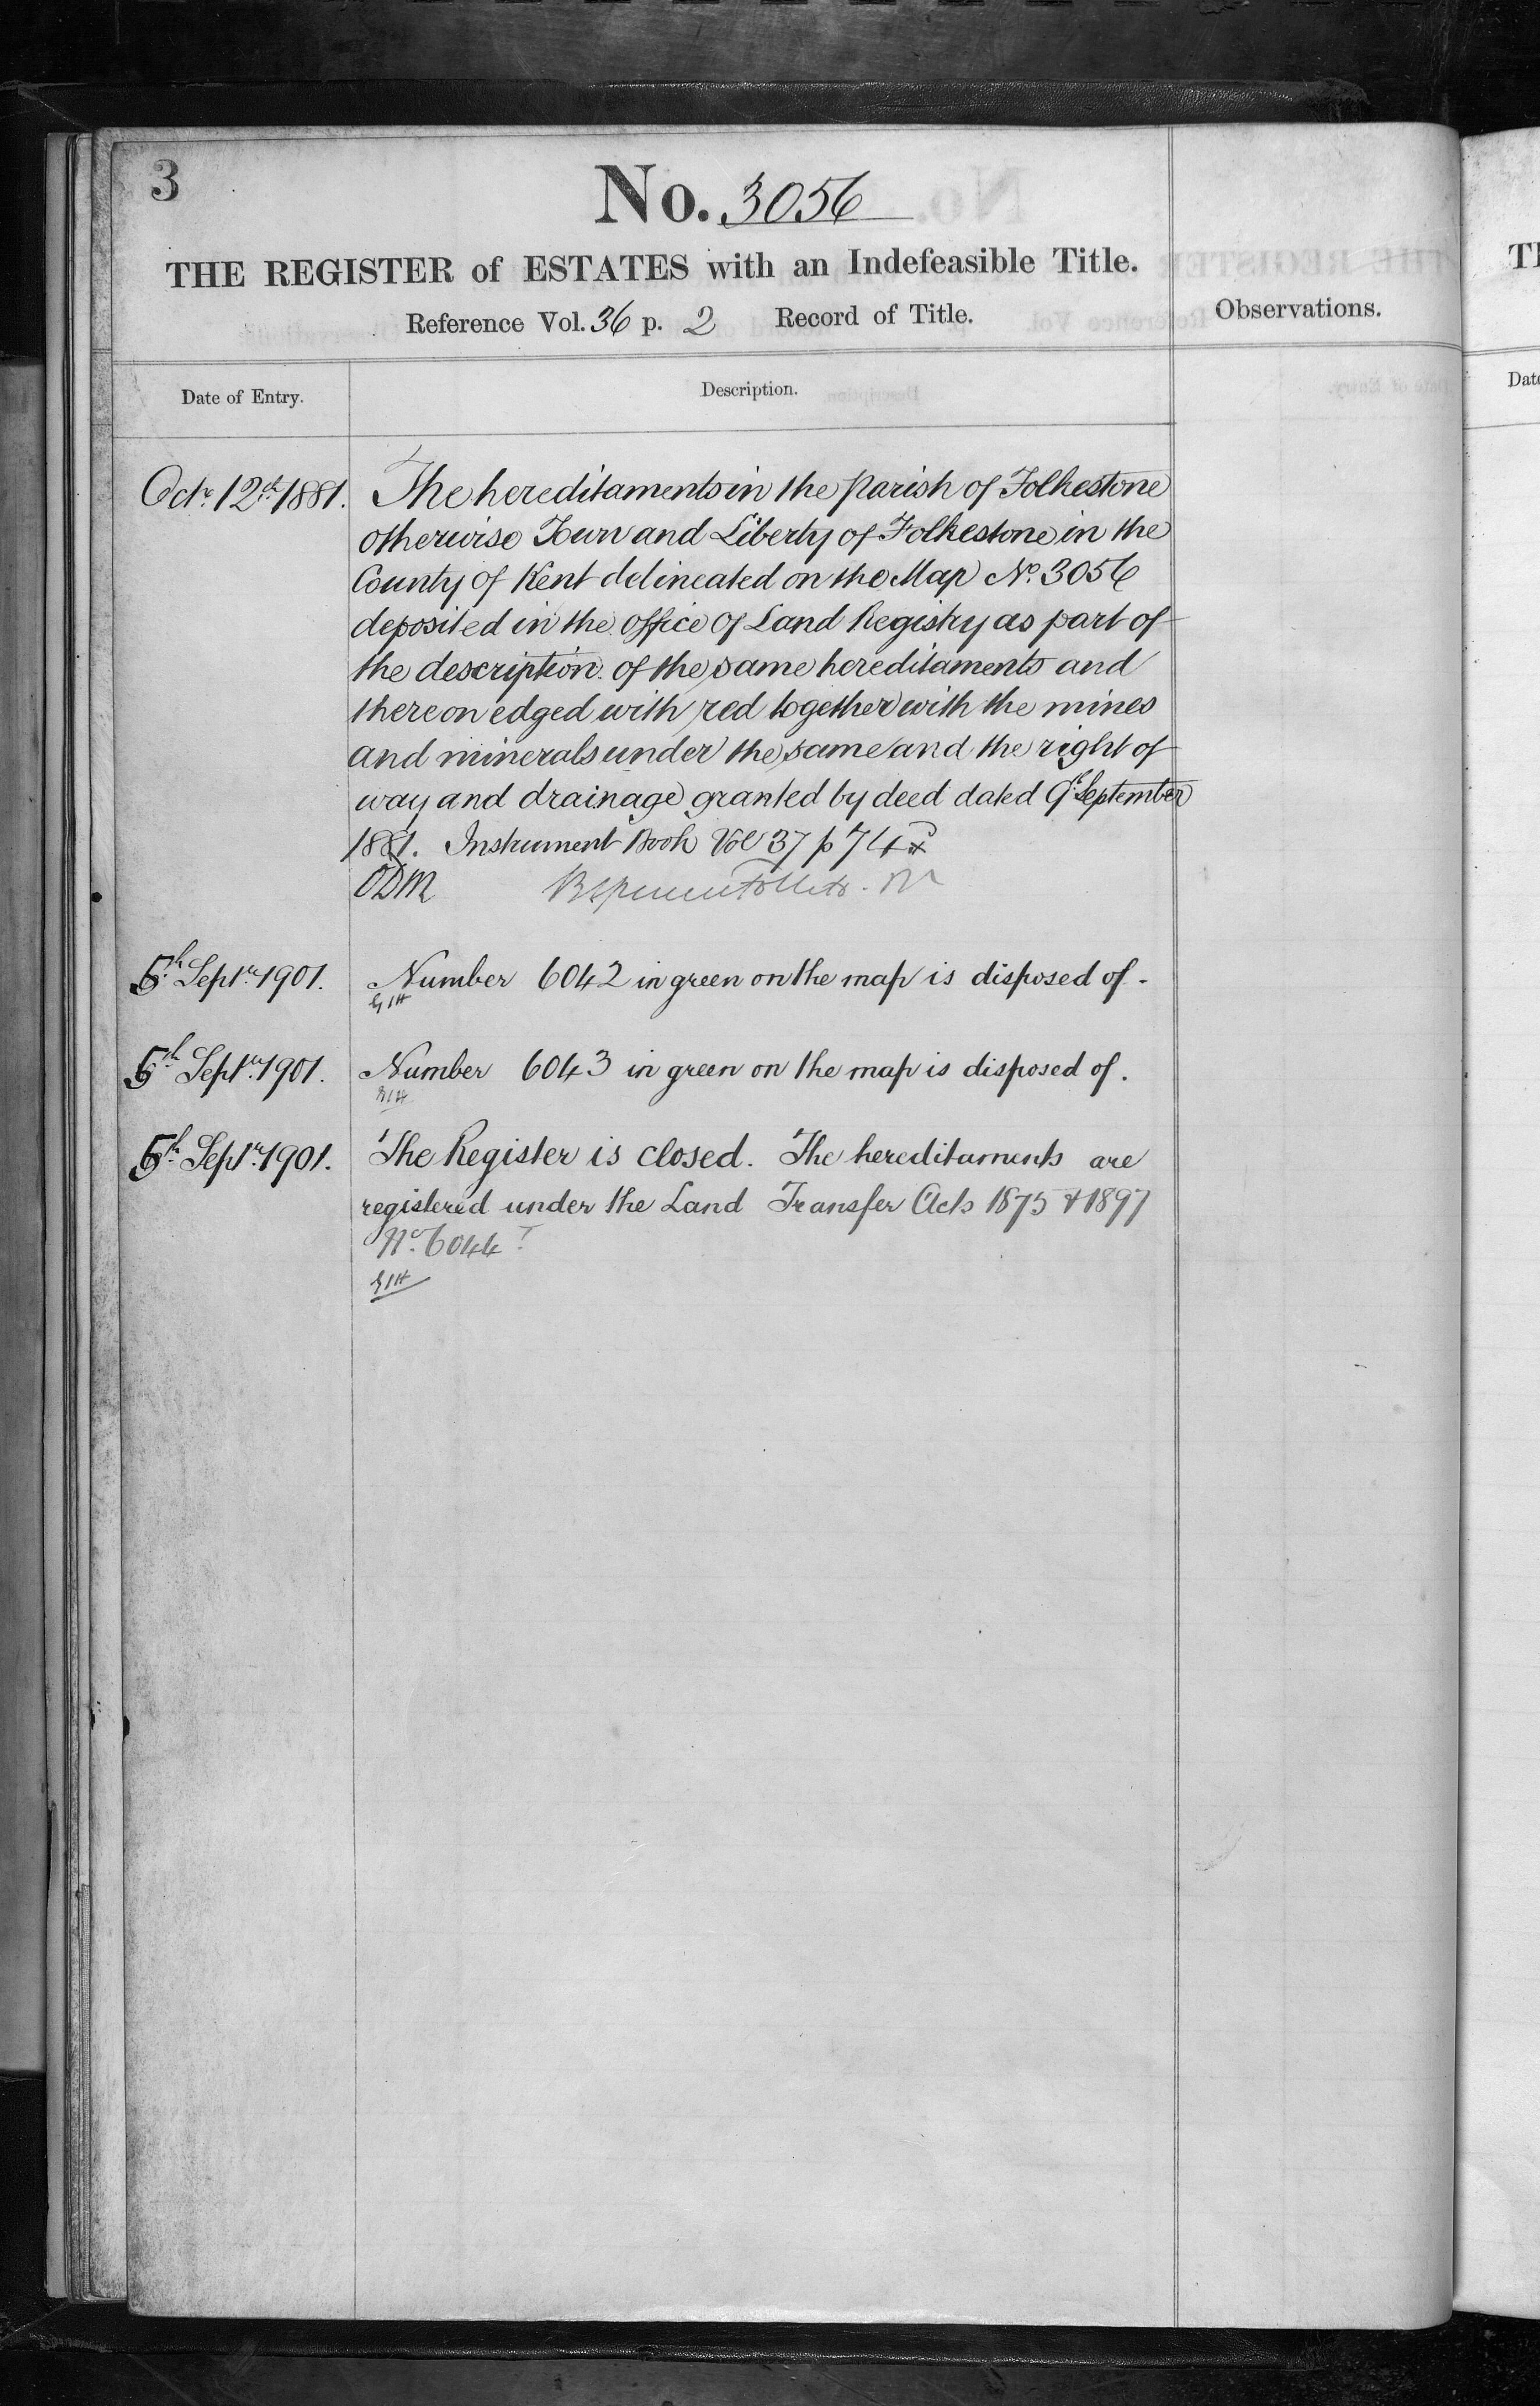 3
No. 3056
THE REGISTER of ESTATES with an Indefeasible Title.
Reference Vol. 36 p. 2 Record of Title.
Observations.
Date of Entry.
Description.
Octr. 12th 1881. The hereditaments in the parish of Folkestone
otherwise Town and Liberty of Folkestone in the
County of Kent delineated on the Map No. 3056
deposited in the office of Land Registry as part of
the description of the same hereditaments and
thereon edged with red together with the mines
and minerals under the same and the right of
way and drainage granted by deed dated 9th September
1881. Instrument Book Vol 37 p 74
ODM
5th Septr. 1901. Number 6042 in green on the map is disposed of.
5th Septr. 1901. Number 6043 in green on the map is disposed of.
5th Septr. 1901. The Register is closed. The hereditaments are
registered under the Land Transfer Acts 1875 & 1897
No. 6044